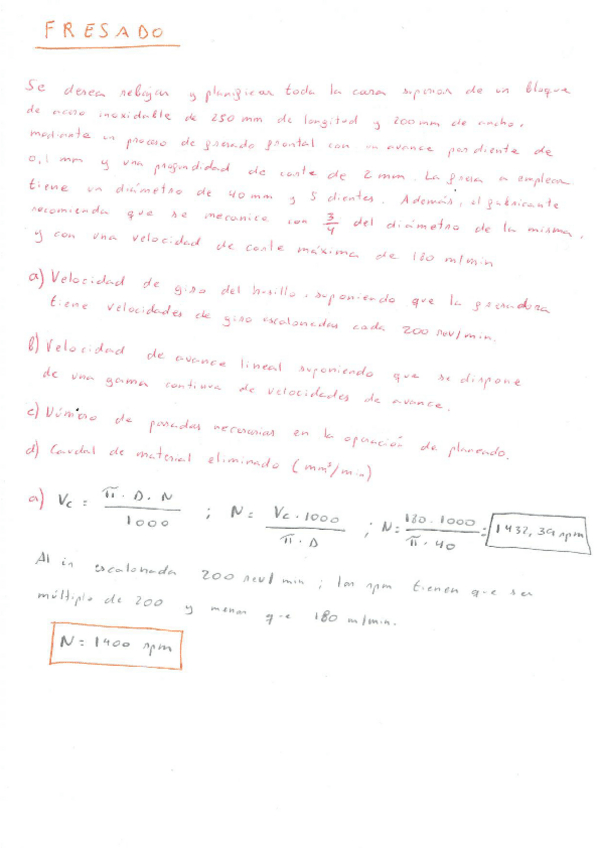 FRESADO
Se desea rebajar y planificar toda la cara superior de un bloque
de acero inoxidable de 250 mm de longitud y 200 mm de ancho,
mediante un proceso de fresado frontal con un avance por diente de
0,1 mm y una profundidad de corte de 2 mm. La fresa a emplear
tiene un diámetro de 40 mm y 5 dientes. Además, el fabricante
recomienda que se mecanice con 3/4 del diámetro de la misma,
y con una velocidad de corte máxima de 180 m/min
a) Velocidad de giro del husillo, suponiendo que la fresadora
tiene velocidades de giro escalonadas cada 200 rev/min.
b) Velocidad de avance lineal suponiendo que se dispone
de una gama continua de velocidades de avance.
c) Número de pasadas necesarias en la operación de planeado.
d) Caudal de material eliminado (mm³/min)
a) Vc = π · D · N / 1000 ; N = Vc · 1000 / π · D ; N = 180 · 1000 / π · 40 = 1432,39 rpm
Al ir escalonada 200 rev/min ; las rpm tienen que ser
múltiplo de 200 y menor que 180 m/min.
N = 1400 rpm